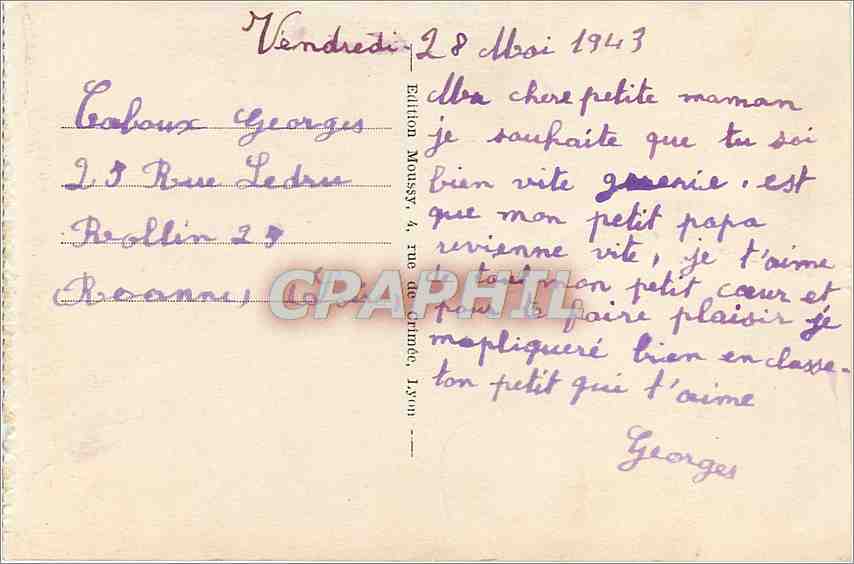 Vendredi 28 Mai 1943
Taboux Georges
25 Rue Ledru
Rollin 25
(Roanne)
CPARPHIL
Edition Moussy, 4, rue de Crimée, Lyon
Ma chere petite maman
je souhaite que tu soi
bien vite guerie. est
que mon petit papa
revienne vite, je t'aime
de tout mon petit cœur et
pour te faire plaisir je
mapliqueré bien en classe.
ton petit qui t'aime
Georges